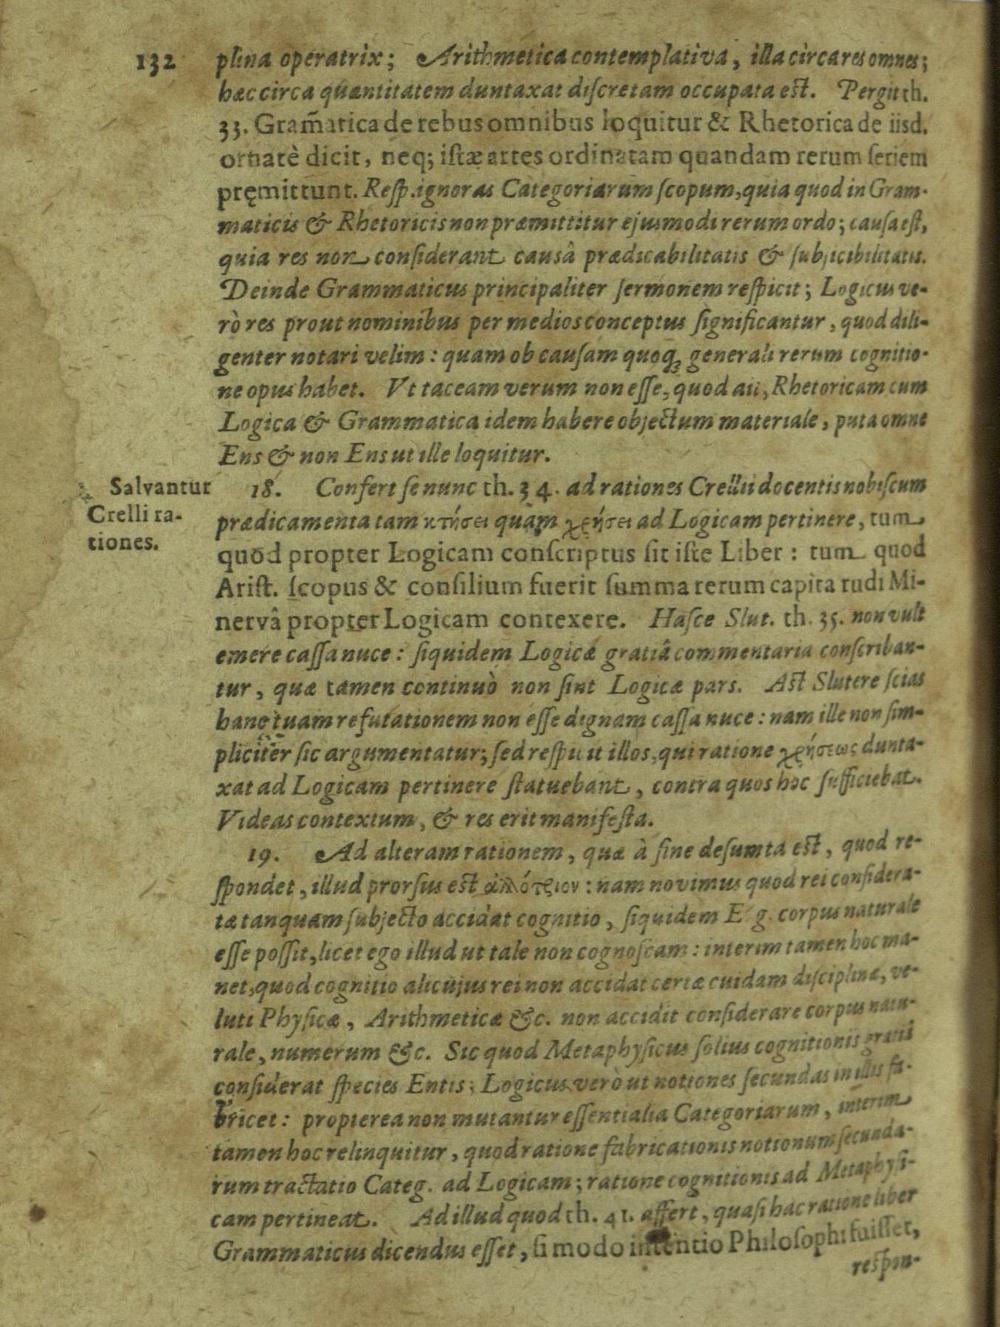 132
plina operatrix; Arithmetica contemplativa, illa circa res omnes;
hæc circa quantitatem duntaxat discretam occupata est. Pergit th.
33. Gram̃atica de rebus omnibus loquitur & Rhetorica de iisd.
ornatè dicit, neq; istæ artes ordinatam quandam rerum seriem
pręmittunt. Resp. ignoras Categoriarum scopum, quia quod in Gram-
maticis & Rhetoricis non præmittitur ejusmodi rerum ordo; causa est,
quia res non considerant causâ prædicabilitatis & subjicibilitatis.
Deinde Grammaticus principaliter sermonem respicit; Logicus ve-
rò res prout nominibus per medios conceptus significantur, quod dili-
genter notari velim: quam ob causam quoq; generali rerum cognitio-
ne opus habet. Vt taceam verum non esse, quod ait, Rhetoricam cum
Logica & Grammatica idem habere objectum materiale, puta omne
Ens & non Ens ut ille loquitur.
Salvantur
Crelli ra-
tiones.
18. Confert se nunc th. 34. ad rationes Crellii docentis nobiscum
prædicamenta tam κτήσει quàm χρήσει ad Logicam pertinere, tum
quod propter Logicam conscriptus sit iste Liber: tum quod
Arist. scopus & consilium fuerit summa rerum capita rudi Mi-
nervâ propter Logicam contexere. Hasce Slut. th. 35. non vult
emere cassa nuce: siquidem Logicæ gratiâ commentaria conscriban-
tur, quæ tamen continuò non sint Logicæ pars. Ast Slutere scias
hanc tuam refutationem non esse dignam cassa nuce: nam ille non sim-
pliciter sic argumentatur; sed respuit illos, qui ratione χρήσεως dunta-
xat ad Logicam pertinere statuebant, contra quos hoc sufficiebat.
Videas contextum, & res erit manifesta.
19. Ad alteram rationem, quæ à fine desumta est, quod re-
spondet, illud prorsus est ἀλλότριον: nam novimus quod rei considera-
tæ tanquam subjecto accidat cognitio, siquidem E g. corpus naturale
esse possit, licet ego illud ut tale non cognoscam: interim tamen hoc ma-
net, quod cognitio alicujus rei non accidat certæ cuidam disciplinæ, ve-
luti Physicæ, Arithmeticæ &c. non accidit considerare corpus natu-
rale, numerum &c. Sic quod Metaphysicus solius cognitionis gratiâ
considerat species Entis; Logicus verò ut notiones secundas in illis fa-
bricet: propterea non mutantur essentialia Categoriarum, interim
tamen hoc relinquitur, quod ratione fabricationis notionum secunda-
rum tractatio Categ. ad Logicam; ratione cognitionis ad Metaphysi-
cam pertineat. Ad illud quod th. 41. affert, quasi hac ratione liber
Grammaticus dicendus esset, si modo intentio Philosophi fuisset,
respon-